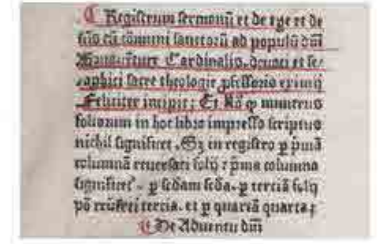 ☾ Registrum sermonū et de tꝑe et de
sctis cū cōmuni sanctorū ad populū dñi
Bonauēture Cardinalis, deuoti et se/
raphici sacre theologie ꝓfessoris eximij
Feliciter incipit: Et Nō ꝙ numerus
foliorum in hoc libro impresso scriptus
nichil significet. Sȝ in registro ꝑ pͥmā
columnā reuersati folij: pͥma columna
significet᷑. ꝑ scdam scda. ꝑ terciā folij
pō reuersi tercia. et ꝑ quartā quarta:
☾ De Aduentu dñi